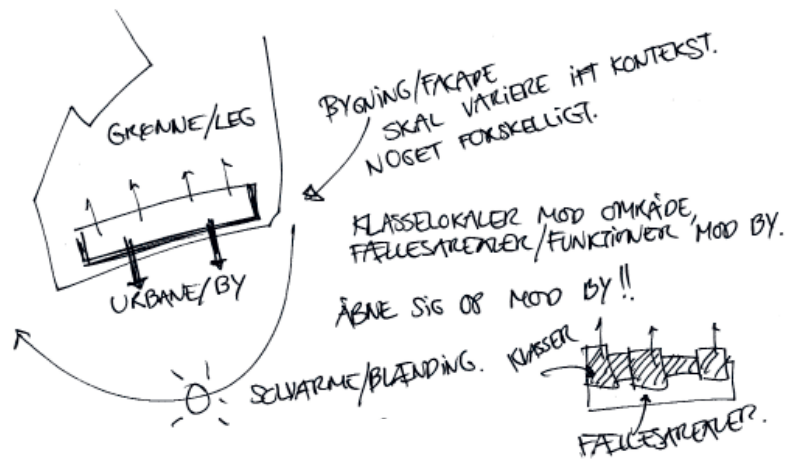 GRØNNE/LEG
BYGNING/FACADE
SKAL VARIERE IFT KONTEKST.
NOGET FORSKELLIGT.
KLASSELOKALER MOD OMRÅDE,
FÆLLESAREALER/FUNKTIONER MOD BY.
URBANE/BY
ÅBNE SIG OP MOD BY!!
SOLVARME/BLÆNDING.
KLASSER
FÆLLESAREALER.